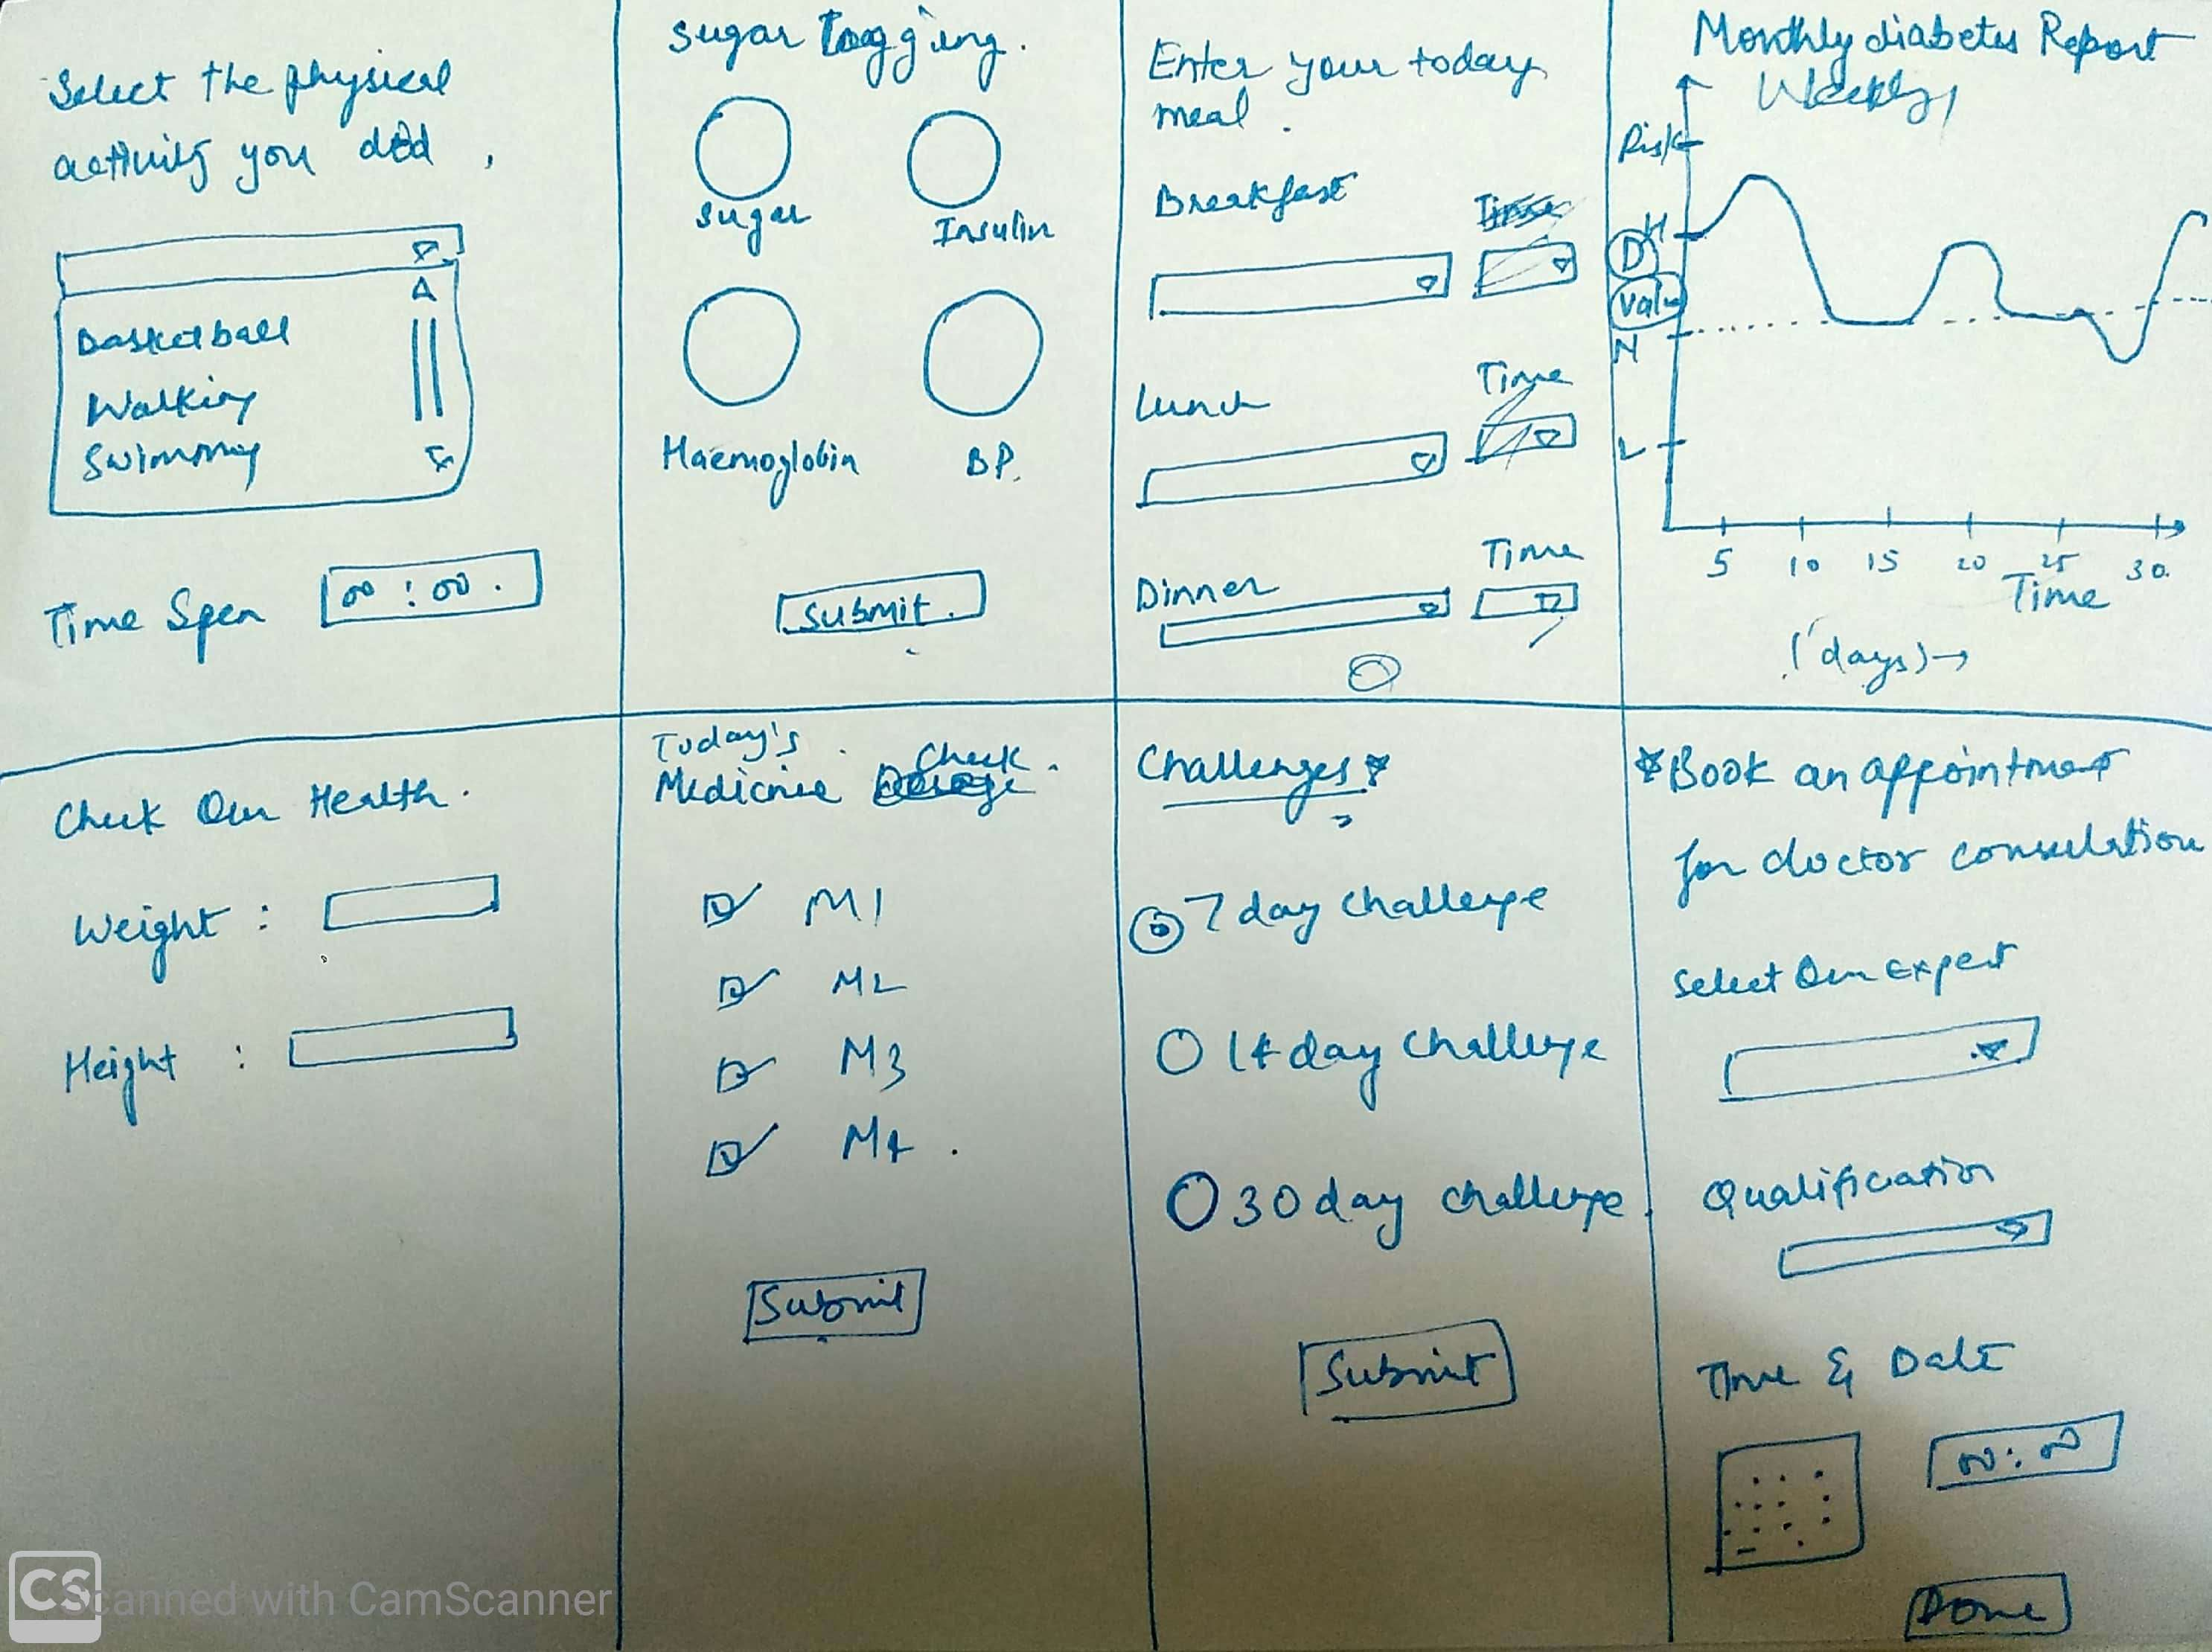 Select the physical
activity you did,
Basketball
Walking
Swimming
Time Spen 00:00.
Sugar Logging.
Sugar Insulin
Haemoglobin BP.
Submit.
Enter your today
meal.
Breakfast Time
Lunch Time
Dinner Time
Monthly diabetes Report
Weekly
Risk
H
D
Value
N
L
5 10 15 20 25 30.
Time
(days)→
Check Our Health.
Weight :
Height :
Today's
Check.
Medicine
M1
M2
M3
M4.
Submit
Challenges
7 day challenge
14 day challenge
30 day challenge.
Submit
Book an appointment
for doctor consulation
Select Our Expert
Qualification
Time & Date
00:00
Done
CS
Scanned with CamScanner